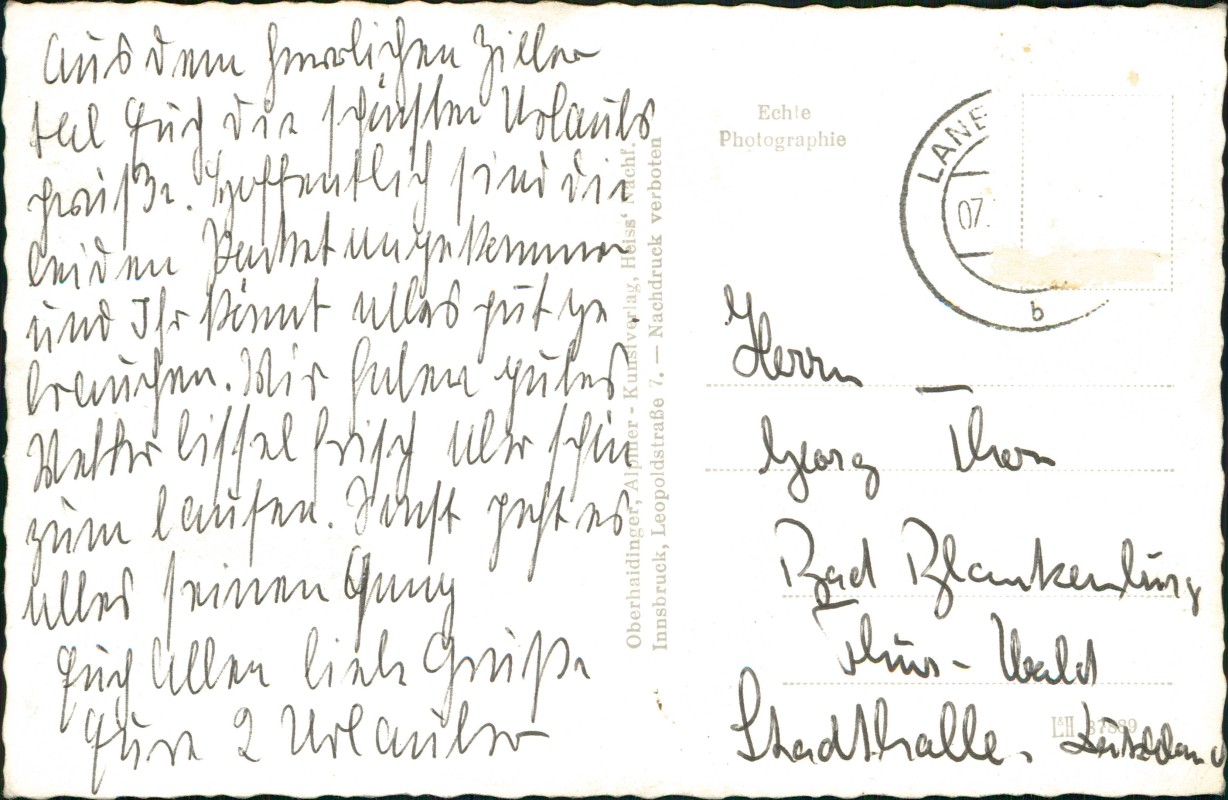 Aus dem herrlichen Ziller
tal Euch die schönsten Urlaubs
grüße. Hoffentlich sind die
beiden Packet angekommen
und Ihr könnt alles gut ge
brauchen. Wir haben gutes
Wetter bissel frisch aber schön
zum laufen. Sonst geht es
alles seinen Gang
Euch Allen liebe Grüße
Eure 2 Urlauber
Oberhaidinger, Alpiner - Kunstverlag, Heiss' Nachf.
Innsbruck, Leopoldstraße 7. — Nachdruck verboten
Echte
Photographie
LANE
07.
b
Herrn
Georg Thon
Bad Blankenburg
Thür - Wald
L&H. 37889
Stadthalle.